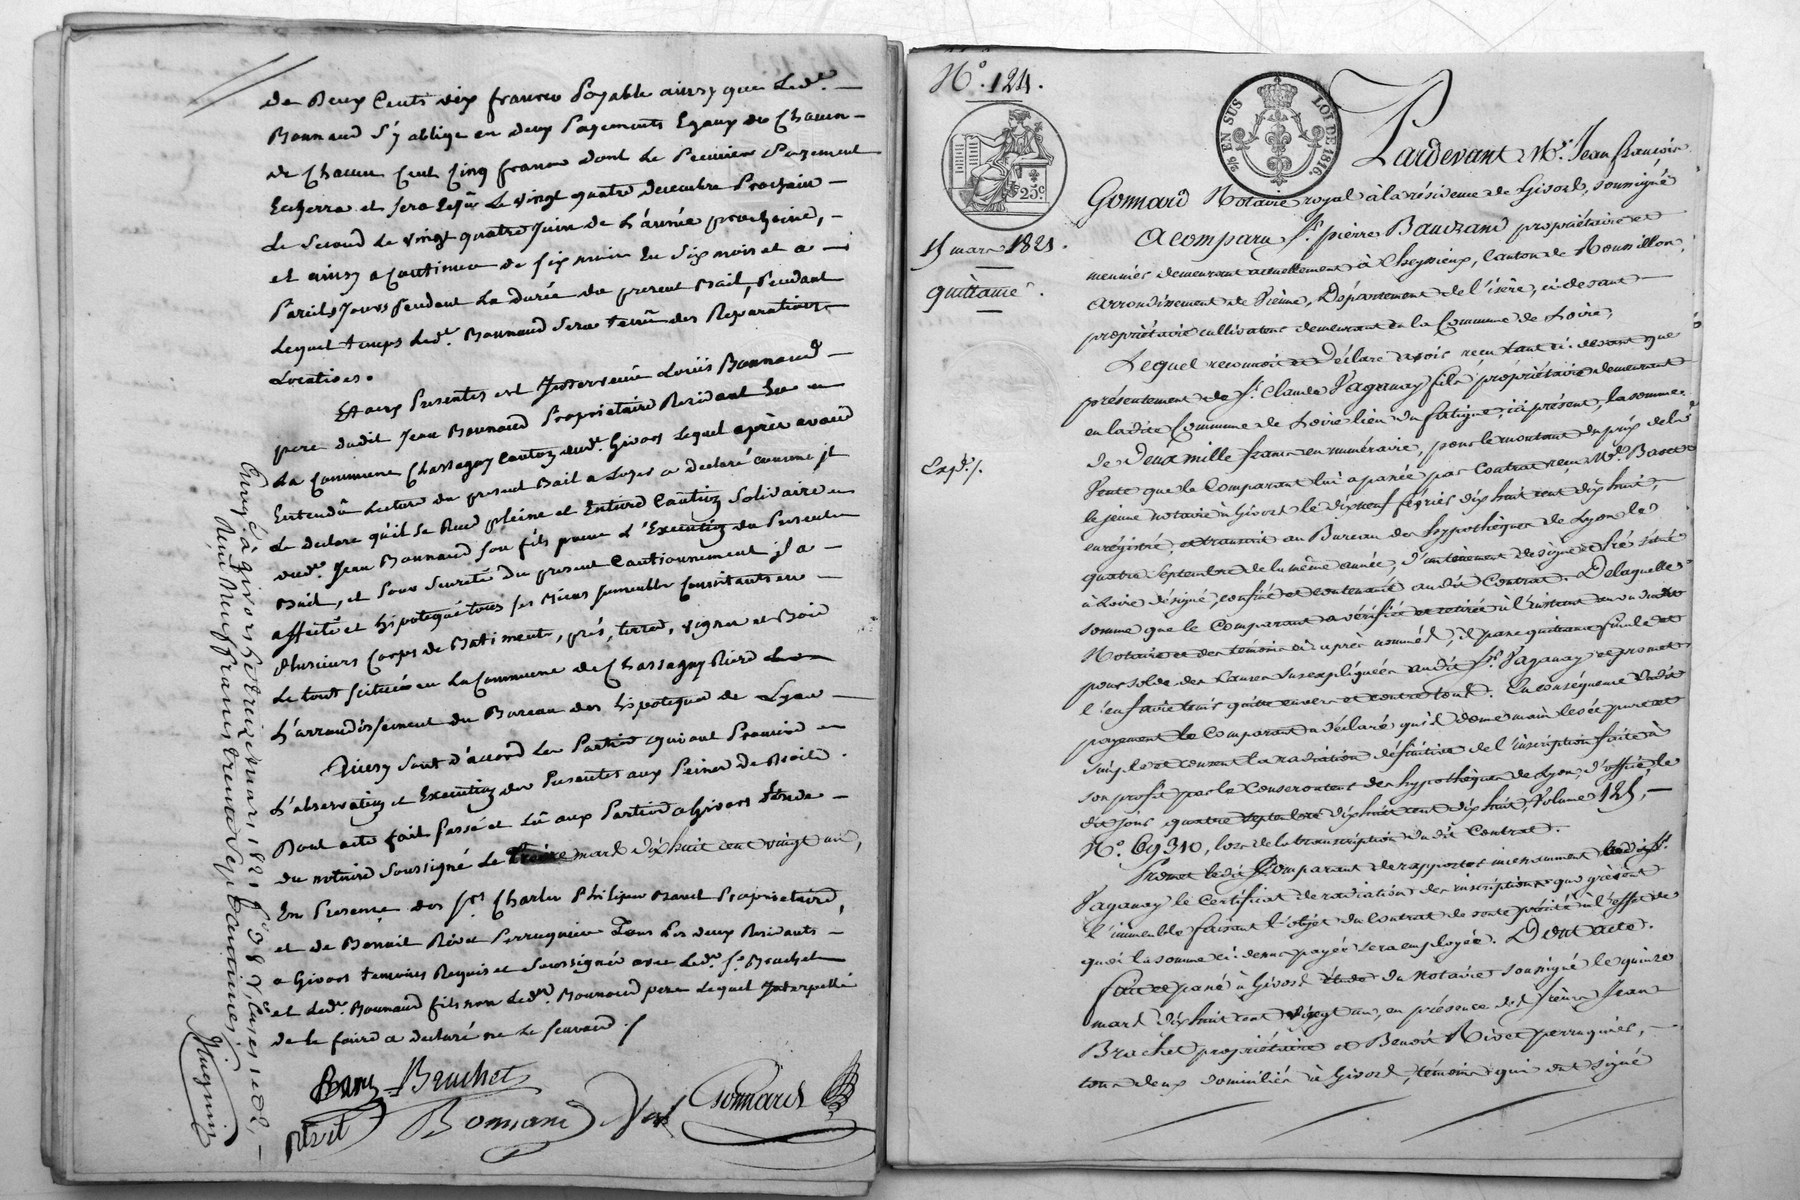 de Deux Cents dix francs Payable ainsy que Led.
Bonnand s'y oblige en deux Payements Egaux de Chacun
de Chacun Cent Cinq francs dont Le Premier Payement
Echerra et sera le vingt quatre decembre Prochain
Le Second Le vingt quatre Juin de L'année prochaine,
et ainsy a Continuer de six mois En Six mois et a
Pareils Jours pendant La durée du present Bail, Pendant
Lequel temps Led. Bonnand Sera tenu des Reparations
Locatives.
Et aux Presentes est Intervenu Louis Bonnand
pere dudit Jean Bonnand Proprietaire Residant En
La Commune Chassagny Canton dud. Givors Lequel après avoir
Entendu Lecture du present Bail a Loyer a declaré comme il
Le declare qu'il se Rend pleine et Entiere Caution Solidaire
dud. Jean Bonnand son fils pour L'Execution du Present
Bail, et Pour Sureté du present Cautionnement il a
affecté et hipotequé tous ses Biens Immeubles Consistants en
Plusieurs Corps de Batiments, prés, terres, vignes et Bois
Le tout scitués en La Commune de Chassagny Riere
L'arrondissement du Bureau des hipoteques de Lyon
Ainsy sont d'accord Les Parties qui ont Promis
L'observation et Execution des Presentes aux Peines de Droit.
Dont acte fait Passé et Lû aux Parties a Givors Etude
du notaire Soussigné Le treize mars dix huit cent vingt un,
En Presence des Srs Charles Philipe Proprietaire,
et de Benoit Rivet Perruquier Tous Les deux Residants
a Givors temoins Requis et Soussignés avec Led. Sr. Bruchet
et Led. Bonnand fils non Led. Bonnand pere Lequel Interpellé
de le faire a declaré ne Le Scavoir ./.
Bruchet
Rivet
Bonnand
Gonnard
Enreg.é à givors le treize mars 1821 f.o 38 V.o Cases 1 et 2,
Reçu Neuf francs trente sept centimes
Hugnin
N.o 124.
2/5 EN SUS LOI DE 1816.
25.c
15 mars 1821.
quittance.
Exp.é /.
Pardevant M.e Jean françois
Gonnard Notaire royal à la résidence de Givors, soussigné
A comparu S.r pierre Bauzand propriétaire et
meunier demeurant actuellement à Cheyssieux, Canton de Roussillon,
arrondissement de Vienne, Département de l'isère, ci-devant
propriétaire cultivateur demeurant en la Commune de Loire,
Lequel reconnoit et Déclare avoir reçu tant ci-devant que
présentement de S.r Claude Paganay fils propriétaire demeurant
en ladite Commune de Loire lieu du fatigue, ici présent, la somme
de Deux mille francs en numéraire, pour le montant du prix de la
Vente que le Comparant lui a passée par Contrat reçu M.e
le jeune notaire à Givors le dix neuf février dix huit cent dix huit,
enregistré, et transcrit au Bureau des hypothèques de Lyon le
quatre Septembre de la même année, d'un tènement de vigne et Pré situé
à Loire désigné, confiné et contenancé audit Contrat. De laquelle
somme que le Comparant a vérifiée et retirée à l'instant au vu dudit
Notaire et des témoins ci-après nommés, il passe quittance finale et
pour solde des causes susexpliquées audit S.r Paganay et promet
l'en faire tenir quitte envers et contre tous. En conséquence dudit
payement le Comparant a déclaré qu'il donne main levée pure et
simple et consent la radiation définitive de l'inscription faite à
son profit par le Conservateur des hypothèques de Lyon, d'office le
dit jour quatre septembre dix huit cent dix huit, Volume 125,
N.o 69310, lors de la transcription dudit Contrat.
Promet ledit Comparant de rapporter incessamment audit Sr.
Paganay le Certificat de radiation des inscriptions que grèvent
l'immeuble faisant l'objet du Contrat de vente précité à l'effet de
quoi la somme ci-dessus payée sera employée. Dont acte.
fait et passé à Givors étude du notaire soussigné le quinze
mars dix huit cent vingt un, en présence des Sieurs Jean
Brachet propriétaire et Benoit Rivet perruquier,
tous deux domiciliés à Givors, témoins qui ont signé